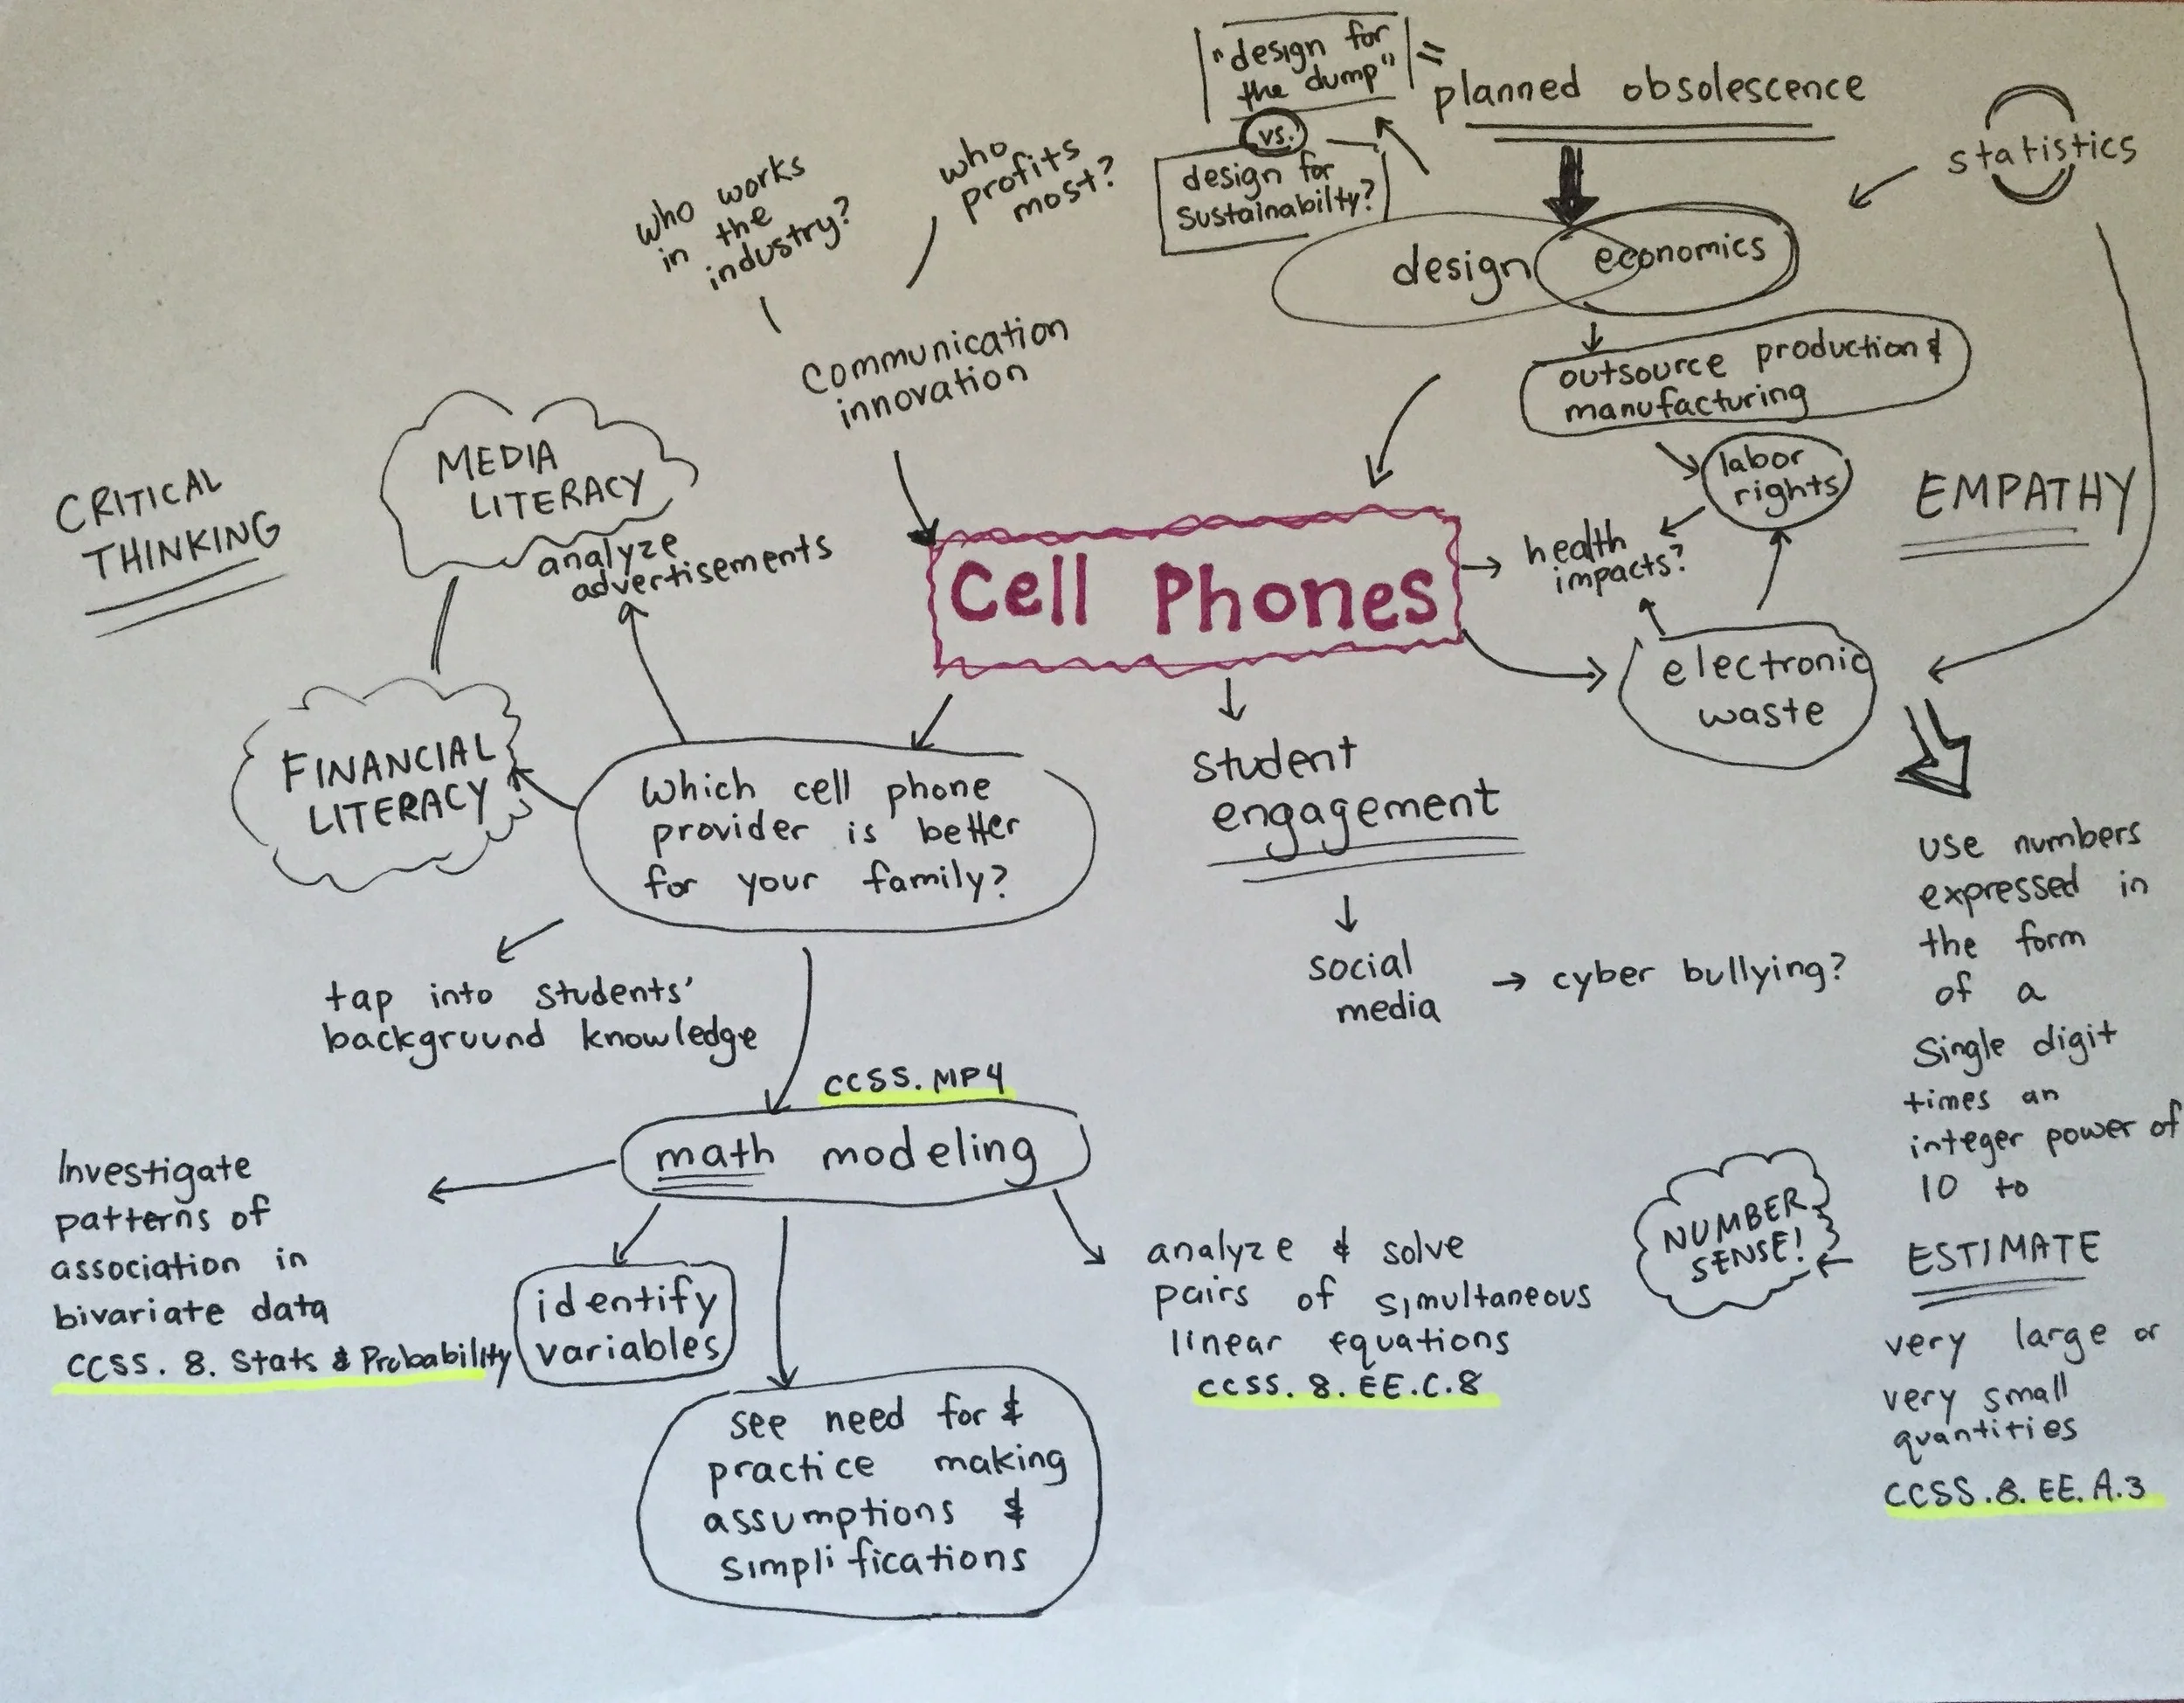 "design for
the dump"
=
planned obsolescence
vs.
design for
sustainabilty?
statistics
who works
in the
industry?
who
profits
most?
design
economics
communication
innovation
outsource production &
manufacturing
labor
rights
EMPATHY
CRITICAL
THINKING
MEDIA
LITERACY
analyze
advertisements
Cell Phones
health
impacts?
electronic
waste
FINANCIAL
LITERACY
Which cell phone
provider is better
for your family?
student
engagement
social
media
cyber bullying?
tap into students'
background knowledge
CCSS.MP4
math modeling
Investigate
patterns of
association in
bivariate data
CCSS. 8. Stats & Probability
identify
variables
see need for &
practice making
assumptions &
simplifications
analyze & solve
pairs of simultaneous
linear equations
CCSS. 8. EE.C.8
NUMBER
SENSE!
use numbers
expressed in
the form
of a
single digit
times an
integer power of
10 to
ESTIMATE
very large or
very small
quantities
CCSS.8. EE. A.3